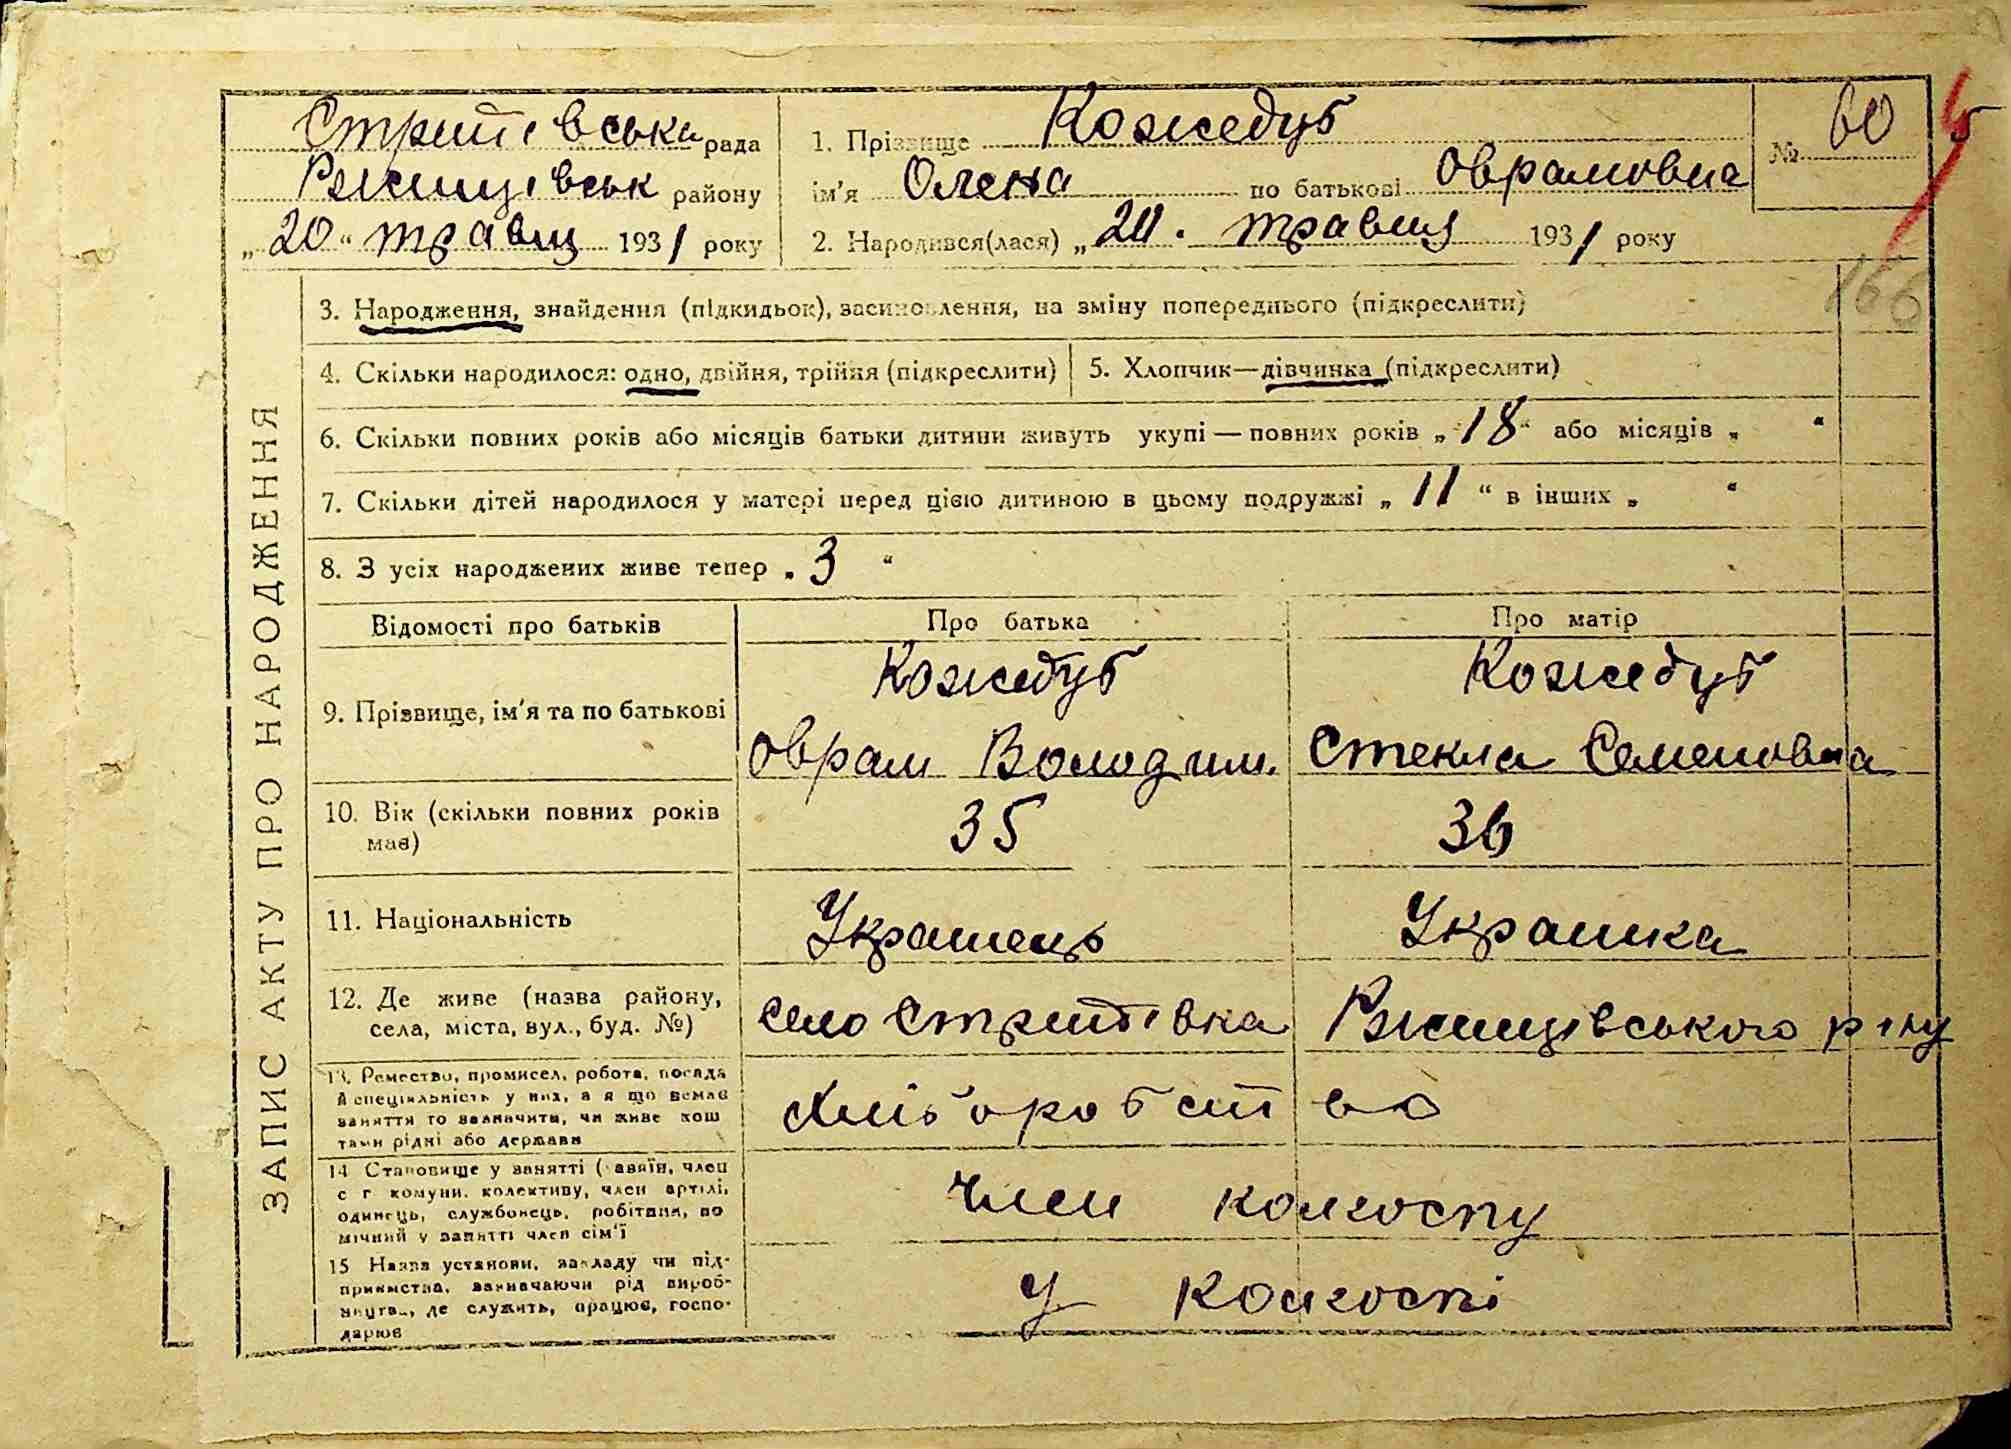 Стритівська рада
Ржищівськ району
„20“ травц 1931 року
1. Прізвище Кожедуб
ім'я Олена по батькові Оврамовна
2. Народився(лася) „20. травня 1931 року
№ 60
5
166
ЗАПИС АКТУ ПРО НАРОДЖЕННЯ
3. Народження, знайдення (підкидьок), засиновлення, на зміну попереднього (підкреслити)
4. Скільки народилося: одно, двійня, трійня (підкреслити)
5. Хлопчик—дівчинка (підкреслити)
6. Скільки повних років або місяців батьки дитини живуть укупі — повних років „18“ або місяців „ “
7. Скільки дітей народилося у матері перед цією дитиною в цьому подружжі „11“ в інших „ “
8. З усіх народжених живе тепер „3“
Відомості про батьків
Про батька
Про матір
9. Прізвище, ім'я та по батькові
Кожедуб
Оврам Володим.
Кожедуб
Стекла Семеновна
10. Вік (скільки повних років
має)
35
36
11. Національність
Українець
Українка
12. Де живе (назва району,
села, міста, вул., буд. №)
село Стритівка Ржищівського р-ну
13. Ремество, промисел, робота, посада
й спеціяльність у них, а я що немає
заняття то зазначити, чи живе кош
тами рідні або держави
Хліборобство
14 Становище у занятті (хазяїн, член
с г комуни, колективу, член артілі,
одинець, службовець, робітник, по
мічний у занятті член сім'ї
Член колгоспу
15 Назва установи, закладу чи під-
приємства, зазначаючи рід вироб-
ництва, де служить, працює, госпо-
дарює
У колгоспі